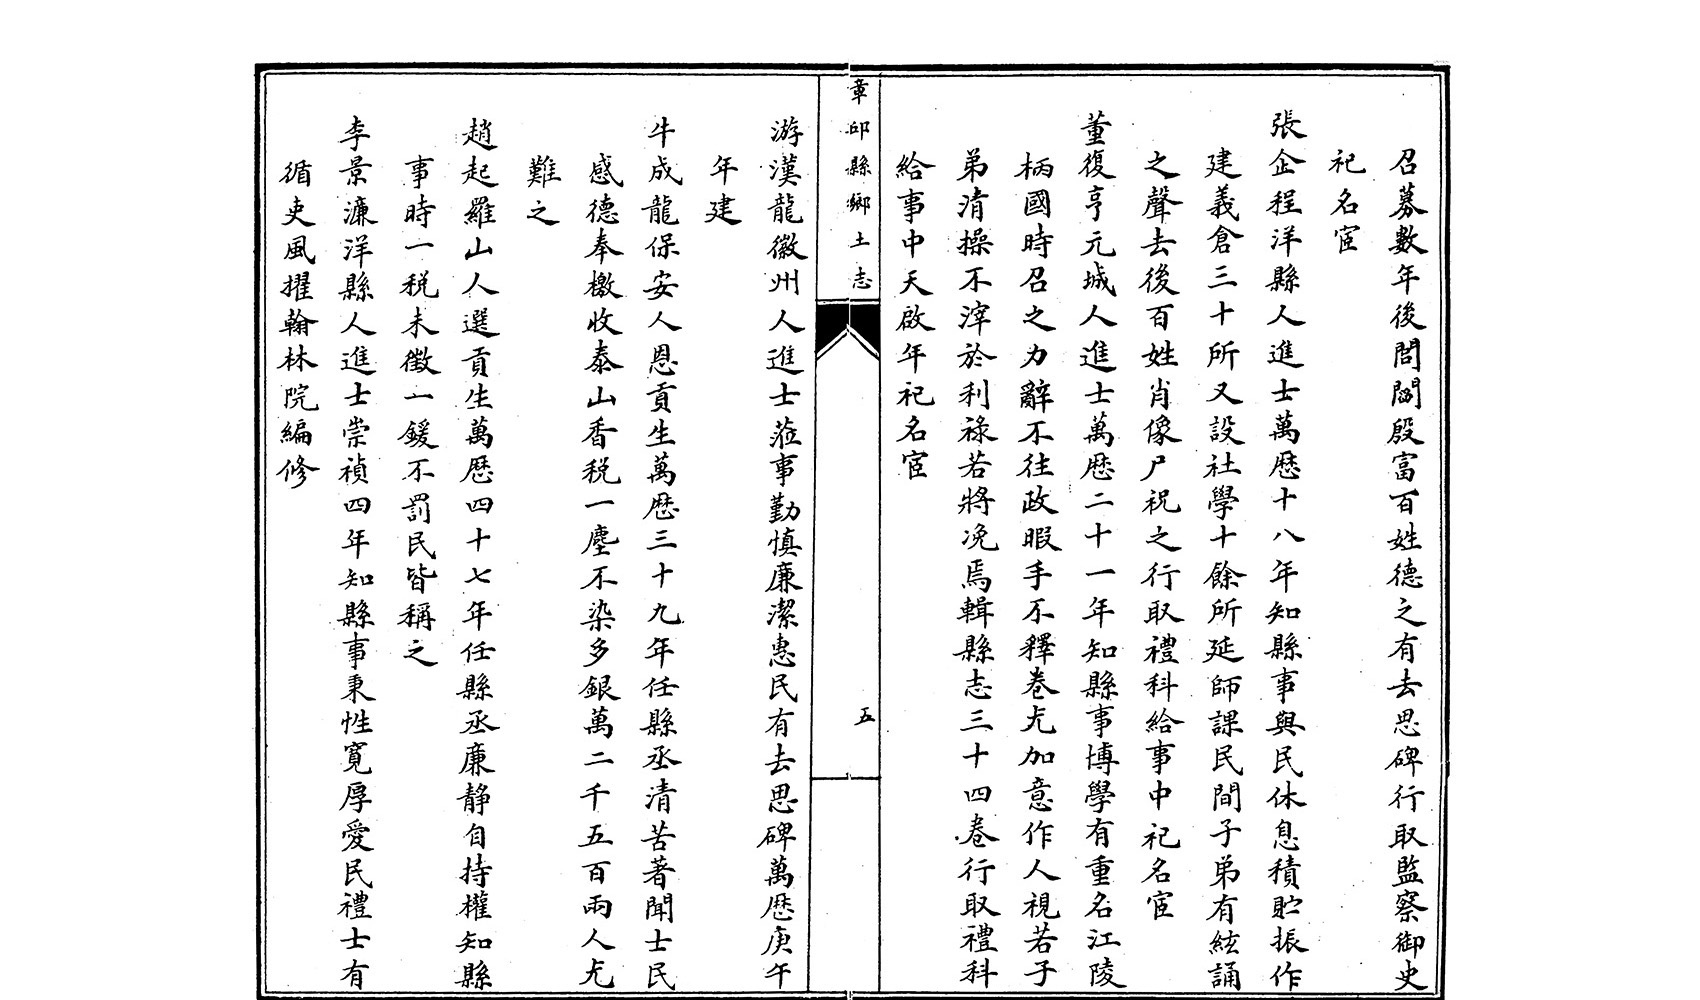 召募數年後閭閻殷富百姓德之有去思碑行取監察御史
祀名宦
張企程洋縣人進士萬歷十八年知縣事與民休息積貯振作
建義倉三十所又設社學十餘所延師課民間子弟有絃誦
之聲去後百姓肖像尸祝之行取禮科給事中祀名宦
董復亨元城人進士萬歷二十一年知縣事博學有重名江陵
柄國時召之力辭不往政暇手不釋卷尤加意作人視若子
弟清操不滓於利祿若將浼焉輯縣志三十四卷行取禮科
給事中天啟年祀名宦
章邱縣鄉土志
五
游漢龍徽州人進士蒞事勤慎廉潔惠民有去思碑萬歷庚午
年建
牛成龍保安人恩貢生萬歷三十九年任縣丞清苦著聞士民
感德奉檄收泰山香稅一塵不染多銀萬二千五百兩人尤
難之
趙起羅山人選貢生萬歷四十七年任縣丞廉靜自持權知縣
事時一稅未徵一鍰不罰民皆稱之
李景濂洋縣人進士崇禎四年知縣事秉性寬厚愛民禮士有
循吏風擢翰林院編修